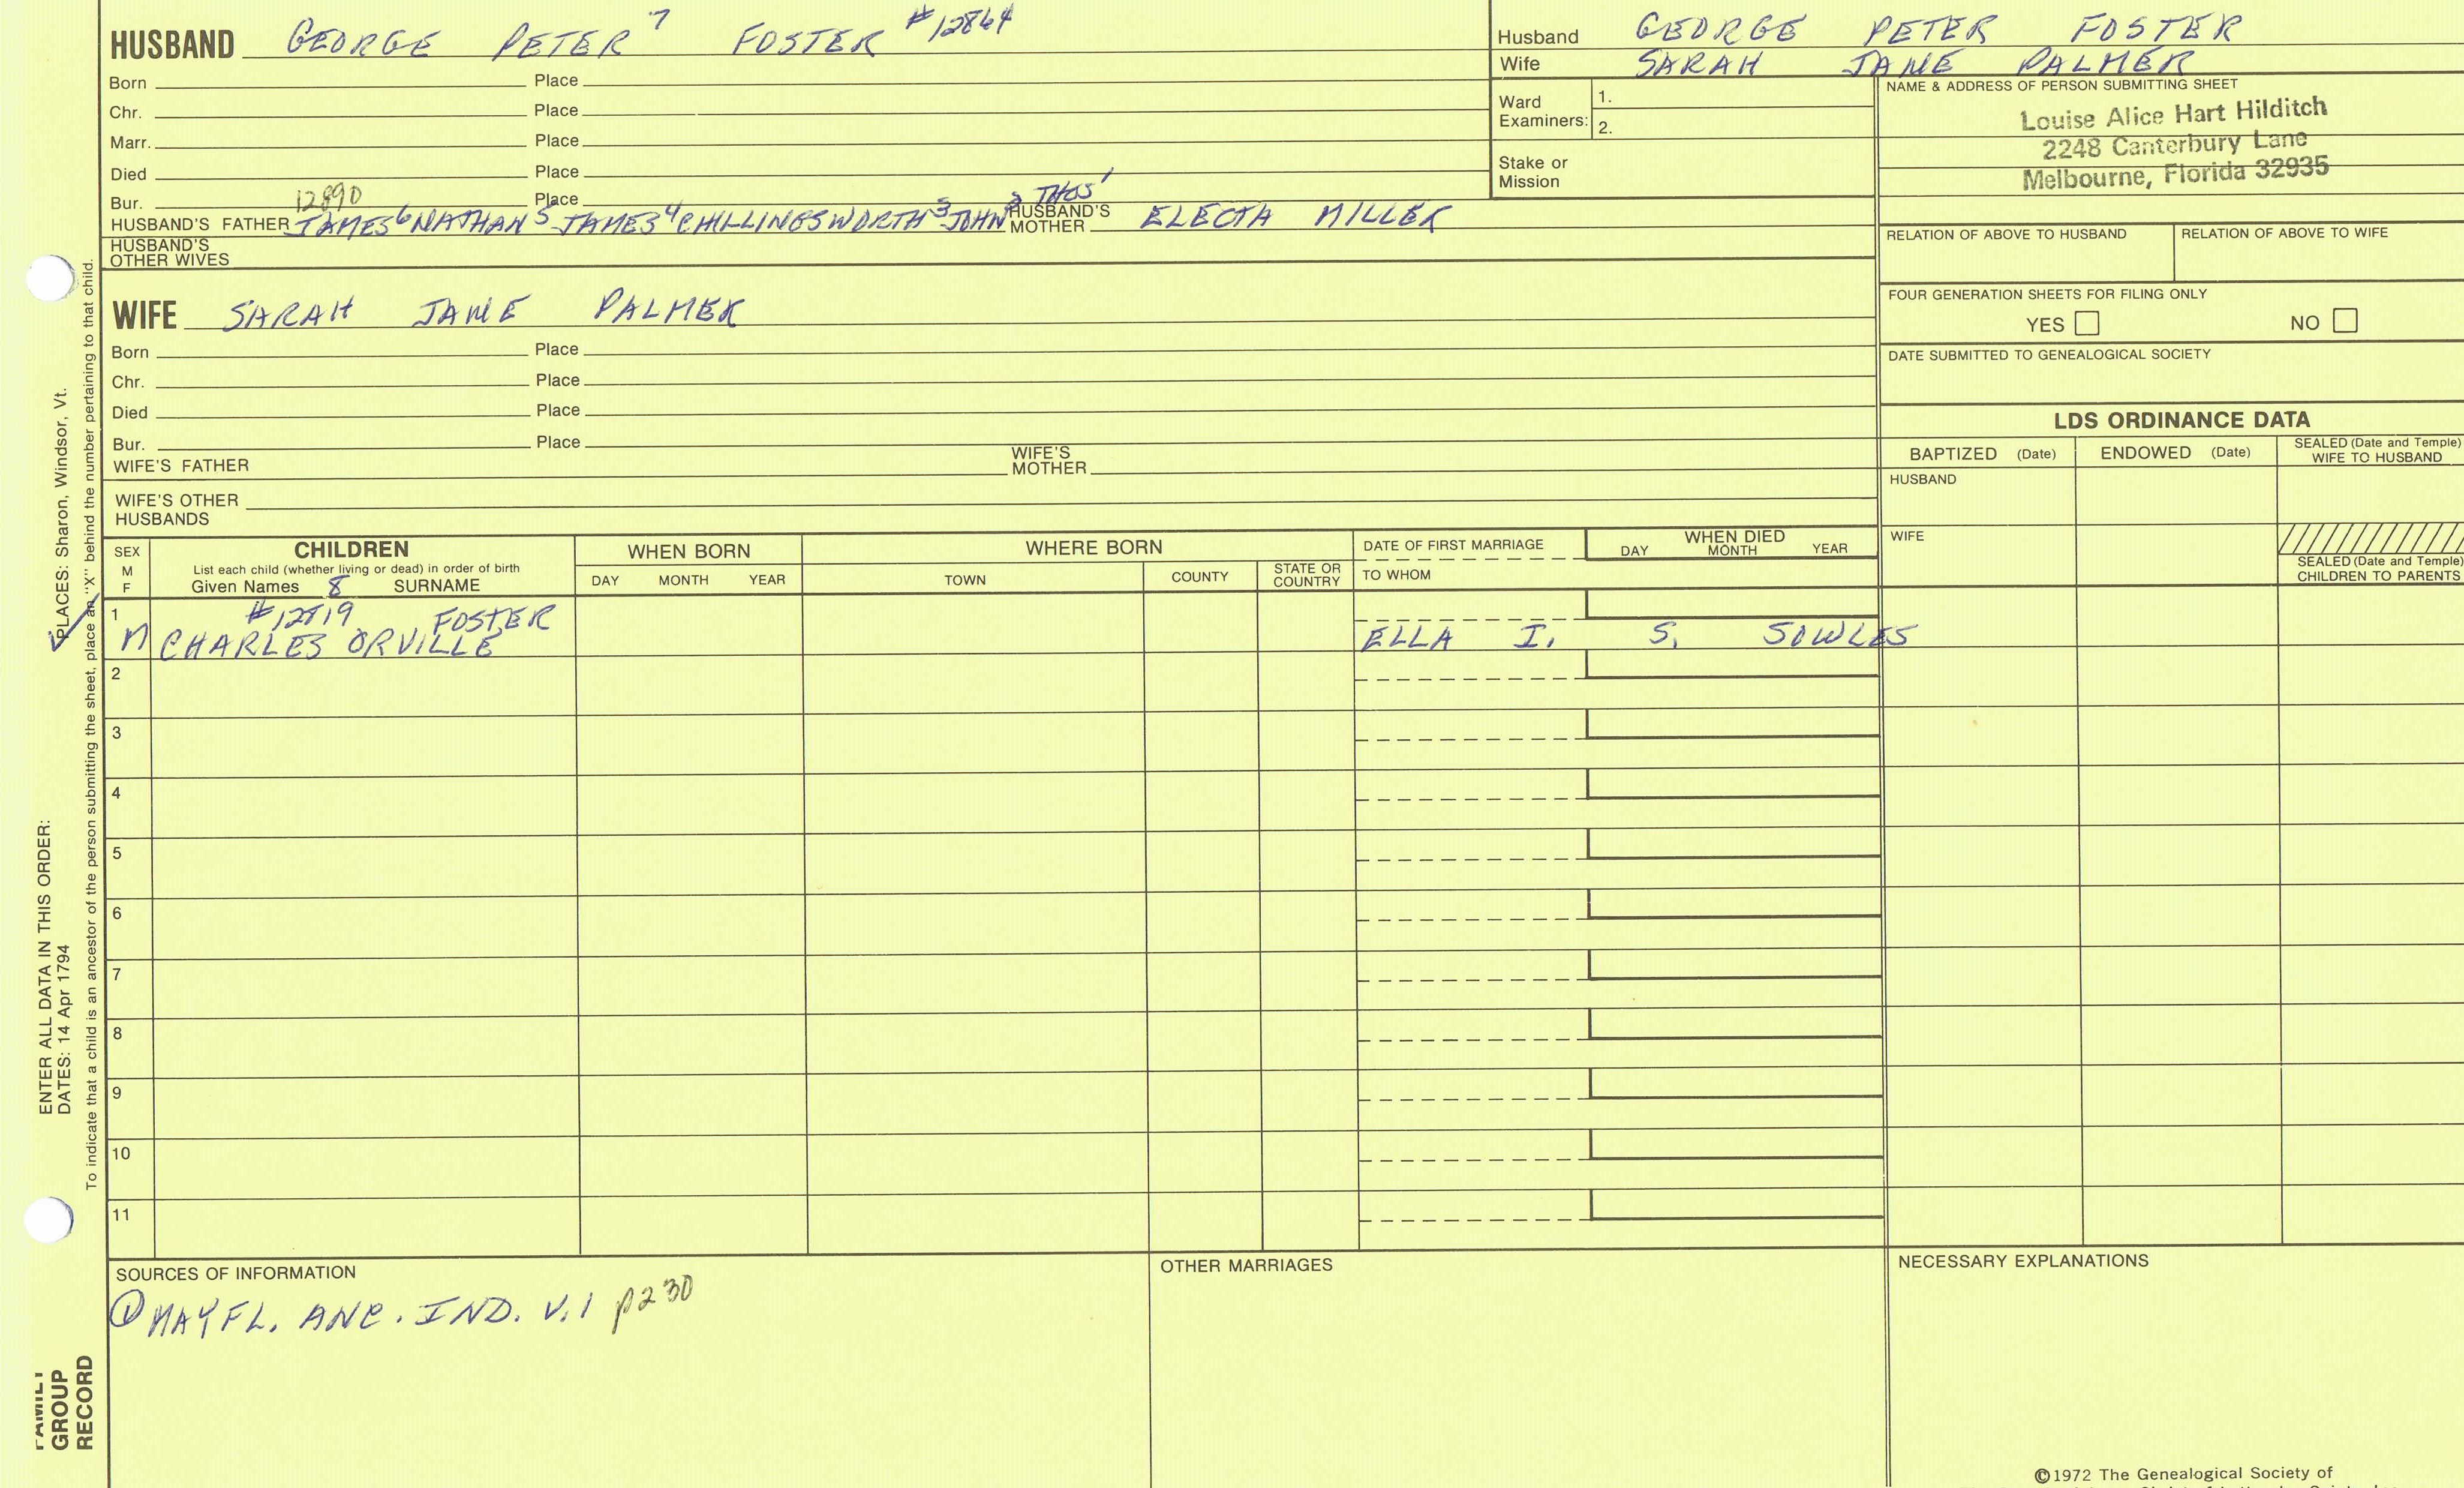 HUSBAND GEORGE PETER 7 FOSTER #12864
Born Place
Chr. Place
Marr. Place
Died Place
Bur. 12890 Place
HUSBAND'S FATHER JAMES 6 NATHAN 5 JAMES 4 CHILLINGSWORTH 3 JOHN 2 THOS 1 HUSBAND'S MOTHER ELECTA MILLER
HUSBAND'S
OTHER WIVES
Husband GEORGE PETER FOSTER
Wife SARAH JANE PALMER
Ward
Examiners:
1.
2.
Stake or
Mission
NAME & ADDRESS OF PERSON SUBMITTING SHEET
Louise Alice Hart Hilditch
2248 Canterbury Lane
Melbourne, Florida 32935
RELATION OF ABOVE TO HUSBAND RELATION OF ABOVE TO WIFE
FOUR GENERATION SHEETS FOR FILING ONLY
YES NO
DATE SUBMITTED TO GENEALOGICAL SOCIETY
WIFE SARAH JANE PALMER
Born Place
Chr. Place
Died Place
Bur. Place
WIFE'S FATHER WIFE'S MOTHER
WIFE'S OTHER
HUSBANDS
LDS ORDINANCE DATA
BAPTIZED (Date) ENDOWED (Date) SEALED (Date and Temple) WIFE TO HUSBAND
HUSBAND
WIFE
SEALED (Date and Temple)
CHILDREN TO PARENTS
SEX
M
F
CHILDREN
List each child (whether living or dead) in order of birth
Given Names 8 SURNAME
WHEN BORN
DAY MONTH YEAR
WHERE BORN
TOWN COUNTY STATE OR COUNTRY
DATE OF FIRST MARRIAGE
TO WHOM
WHEN DIED
DAY MONTH YEAR
1 #12819 FOSTER
M CHARLES ORVILLE ELLA I. S. SOWLES
2
3
4
5
6
7
8
9
10
11
SOURCES OF INFORMATION
① MAYFL. ANC. IND. V.1 p230
OTHER MARRIAGES
NECESSARY EXPLANATIONS
©1972 The Genealogical Society of
ENTER ALL DATA IN THIS ORDER:
DATES: 14 Apr 1794
PLACES: Sharon, Windsor, Vt.
To indicate that a child is an ancestor of the person submitting the sheet, place an "X" behind the number pertaining to that child.
FAMILY
GROUP
RECORD